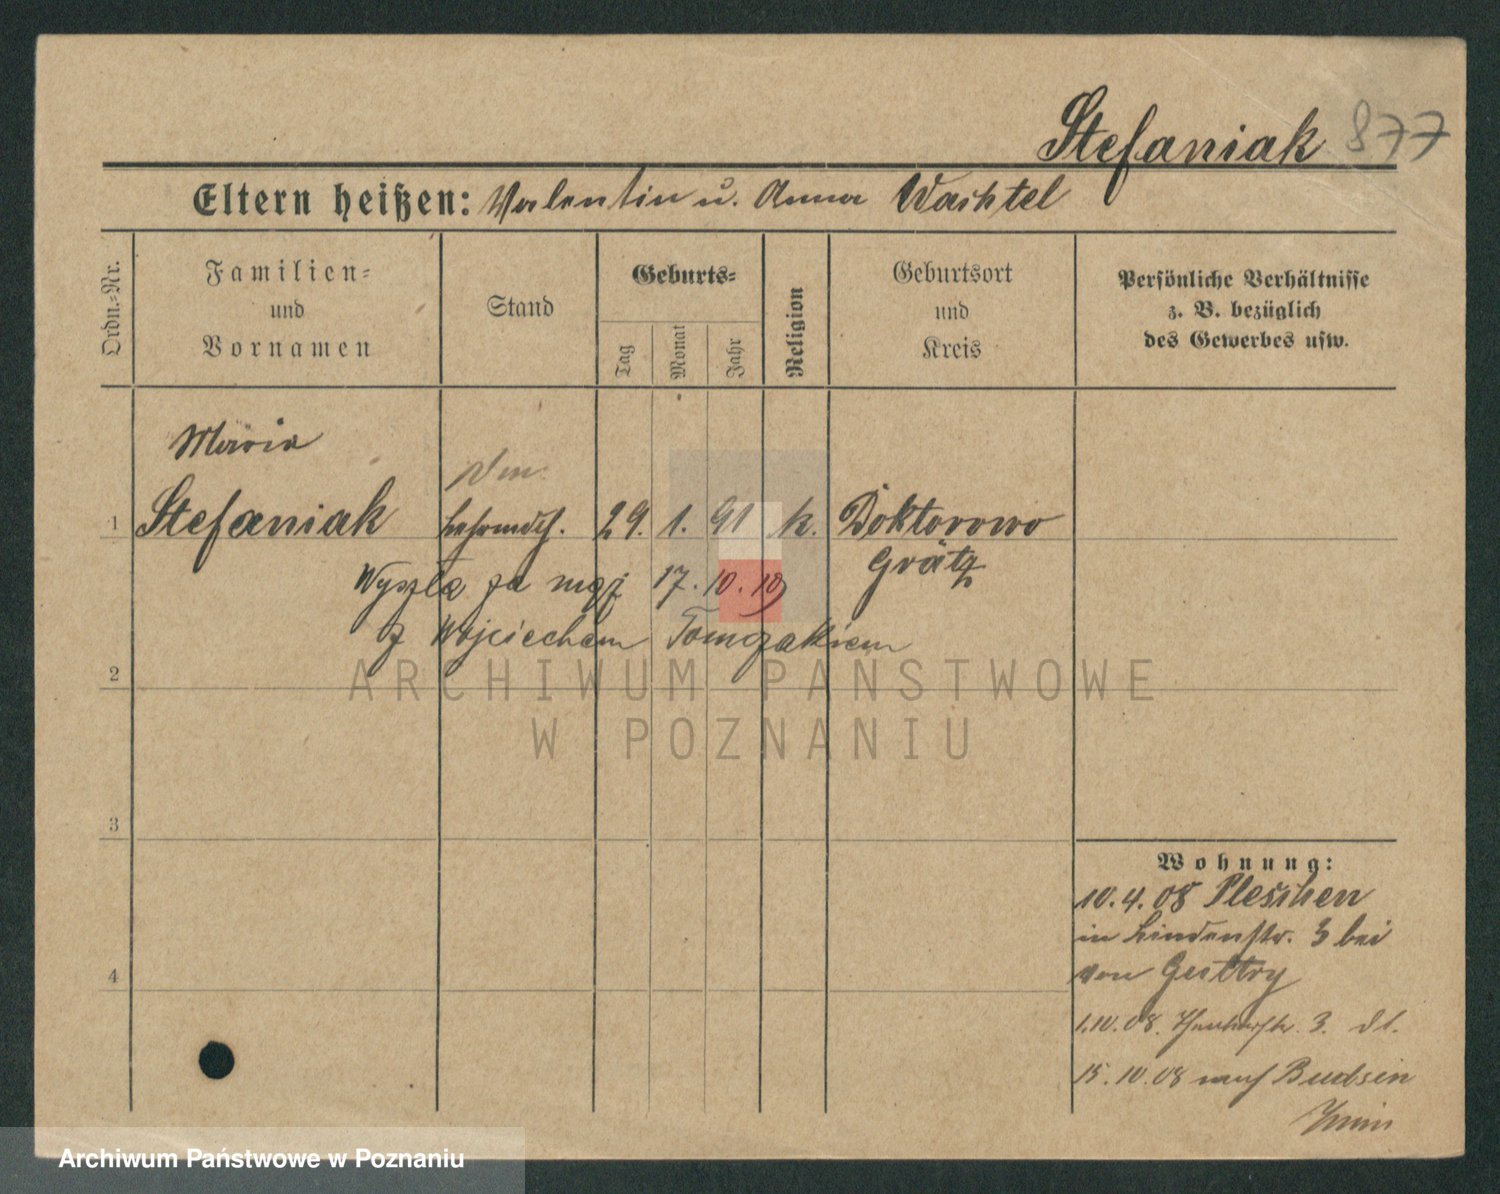 Stefaniak 877
Eltern heißen: Valentin u. Anna Wachtel
Ordn.=Nr.
Familien=
und
Vornamen
Stand
Geburts=
Tag
Monat
Jahr
Religion
Geburtsort
und
Kreis
Persönliche Verhältnisse
z. B. bezüglich
des Gewerbes usw.
Maria
1 Stefaniak 29. 1. 91 k. Doktorowo
Grätz
Wyszła za mąż 17.10.19
z Wojciechem Tomczakiem
2
3
4
Wohnung:
10.4.08 Pleschen
in Lindenstr. 3 bei
von
1.10.08. 3.
15.10.08 auf Budsin
ARCHIWUM PAŃSTWOWE
W POZNANIU
Archiwum Państwowe w Poznaniu